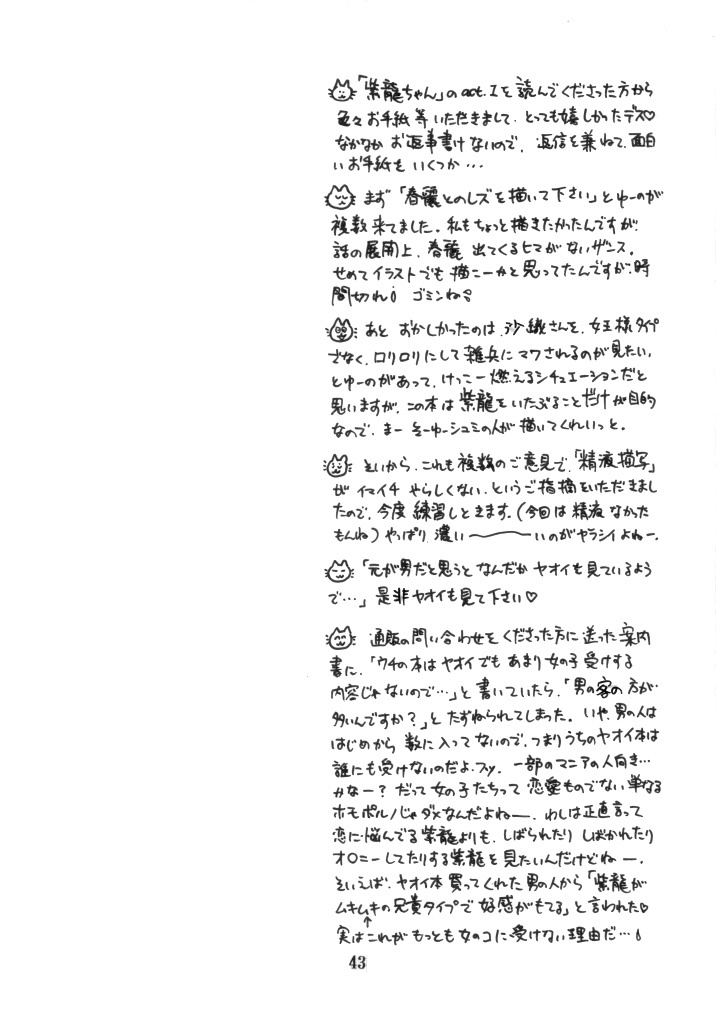 「紫龍ちゃん」のact.Iを読んでくださった方から
色々お手紙等いただきまして、とっても嬉しかったデス♡
なかなかお返事書けないので、返信を兼ねて、面白
いお手紙をいくつか…
まず「春麗とのレズを描いて下さい」とゆーのが
複数来てました。私もちょっと描きたかったんですが、
話の展開上、春麗出てくるヒマがないザンス。
せめてイラストでも描こーかと思ってたんですが、時
間切れ! ゴミンね
あと おかしかったのは、沙織さんを、女王様タイプ
でなく、ロリロリにして雑兵にマワされるのが見たい、
とゆーのがあって、けっこー燃えるシチュエーションだと
思いますが、この本は紫龍をいたぶることだけが目的
なので、まー そーゆーシュミの人が描いてくれいっと。
そいから、これも複数のご意見で、「精液描写」
が イマイチ やらしくない、というご指摘をいただきまし
たので、今度練習しときます。(今回は精液なかった
もんね)やっぱり濃い〜〜いのがヤラシイよねー。
「元が男だと思うと なんだか ヤオイも見ているよう
で…」是非ヤオイも見て下さい♡
通販の問い合わせをくださった方に送った案内
書に、「ウチの本はヤオイでも あまり女の子受けする
内容じゃないので…」と書いていたら、「男の客の方が
多いんですか?」とたずねられてしまった。いや、男の人は
はじめから 数に入ってないので、つまりうちのヤオイ本は
誰にも受けないのだよ、フッ。一部のマニアの人向き…
かなー? だって女の子たちって 恋愛ものでない単なる
ホモポルノじゃダメなんだよねー、わしは正直言って
恋に悩んでる紫龍よりも、しばられたり しばかれたり
オ○ニーしてたりする紫龍を見たいんだけどねー。
そいえば、ヤオイ本買ってくれた男の人から「紫龍が
ムキムキの兄貴タイプで好感がもてる」と言われた♡
実は↑これが もっとも女のコに受けない理由だ…!
43